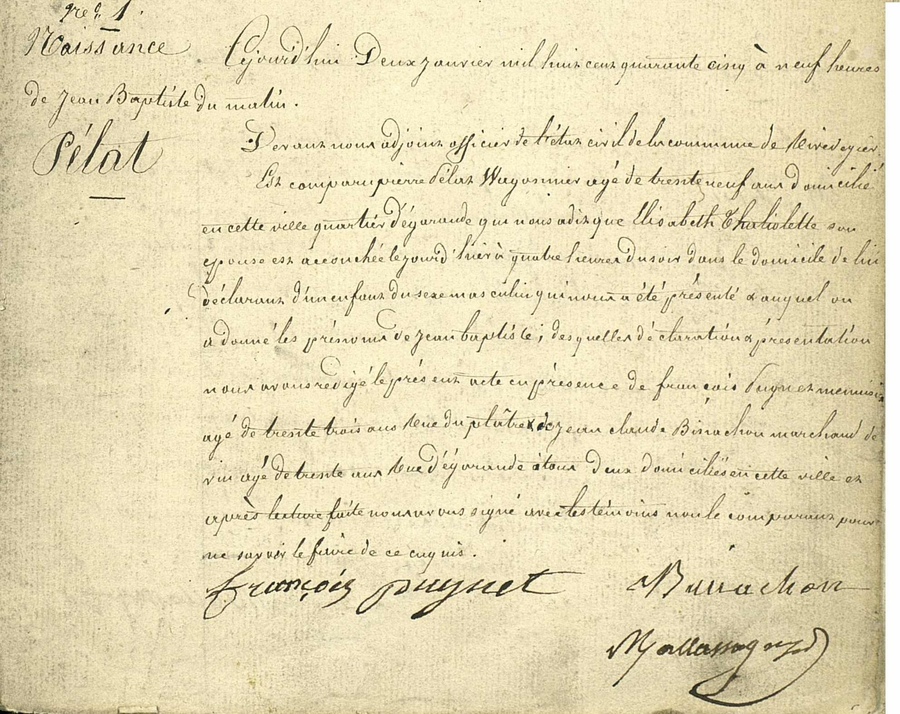 1.
Naissance
de Jean Baptiste
Pélat
Cejourd'hui Deux janvier mil huit cent quarante cinq à neuf heures
du matin.
Devant nous adjoint officier de l'état civil de la commune de Rivedegier,
Est comparu pierre Pélat Wagonnier agé de trente neuf ans domicilié
en cette ville quartier d'égarande qui nous a dit que Elisabeth Thaliolette son
epouse est accouchée le jourd'hier à quatre heures du soir dans le domicile de lui
déclarant d'un enfant du sexe masculin qui nous a été présenté & auquel on
a donné les prénoms de Jean baptiste; desquelles déclaration & présentation
nous avons redigé le présent acte en présence de françois Puynet menuisier
agé de trente trois ans Rue du plâtre & de Jean claude Binachon marchand de
vin agé de trente ans Rue d'égarande tous deux domiciliés en cette ville et
après lecture faite nous avons signé avec les témoins non le comparant pour
ne savoir le faire de ce enquis.
françois puynet Binachon